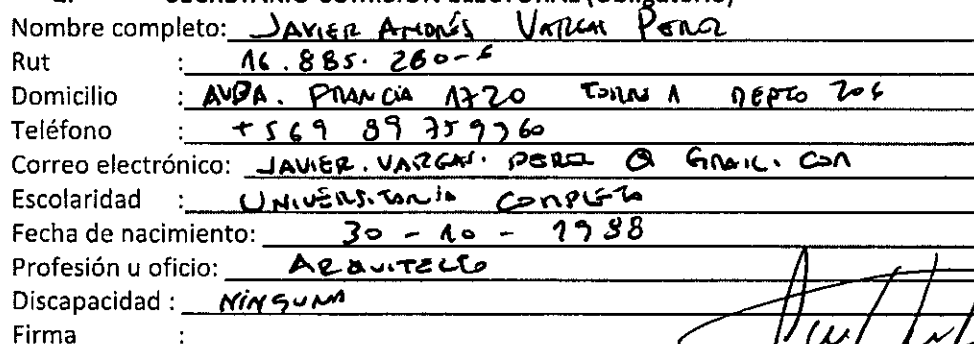 SECRETARIO COMISIÓN ELECTORAL (Obligatorio)
Nombre completo: JAVIER ANDRÉS VARGAS PEREZ
Rut : 16.885.260-
Domicilio : AVDA. FRANCIA 1720 TORRE A DEPTO 206
Teléfono : +569 89759960
Correo electrónico: JAVIER.VARGAS.PEREZ@GMAIL.COM
Escolaridad : UNIVERSITARIA COMPLETA
Fecha de nacimiento: 30-10-1988
Profesión u oficio: ARQUITECTO
Discapacidad : NINGUNA
Firma :